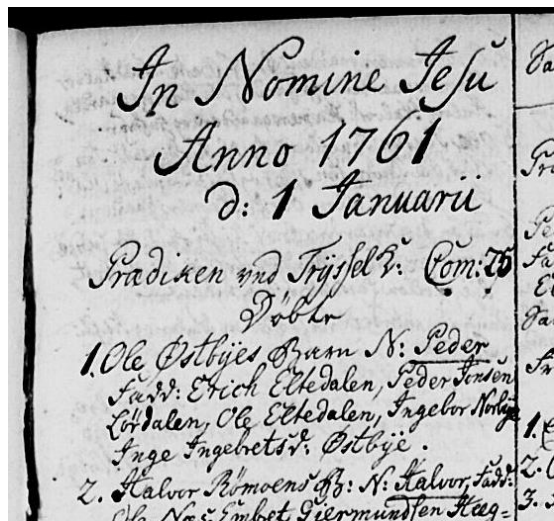 In Nomine Jesu
Anno 1761
d: 1 Januarii
Prædiken vnd Tryssel K: Com: 25
Döbte
1. Ole Östbyes Barn N: Peder
Fadd: Erich Eltedalen, Peder Jonsen
Lördalen, Ole Eltedalen, Ingebor Norbye
Inge Ingebretsd: Östbye.
2. Halvor Römoens B: N: Halvor, Fadd:
Ole Embet Giermundsen